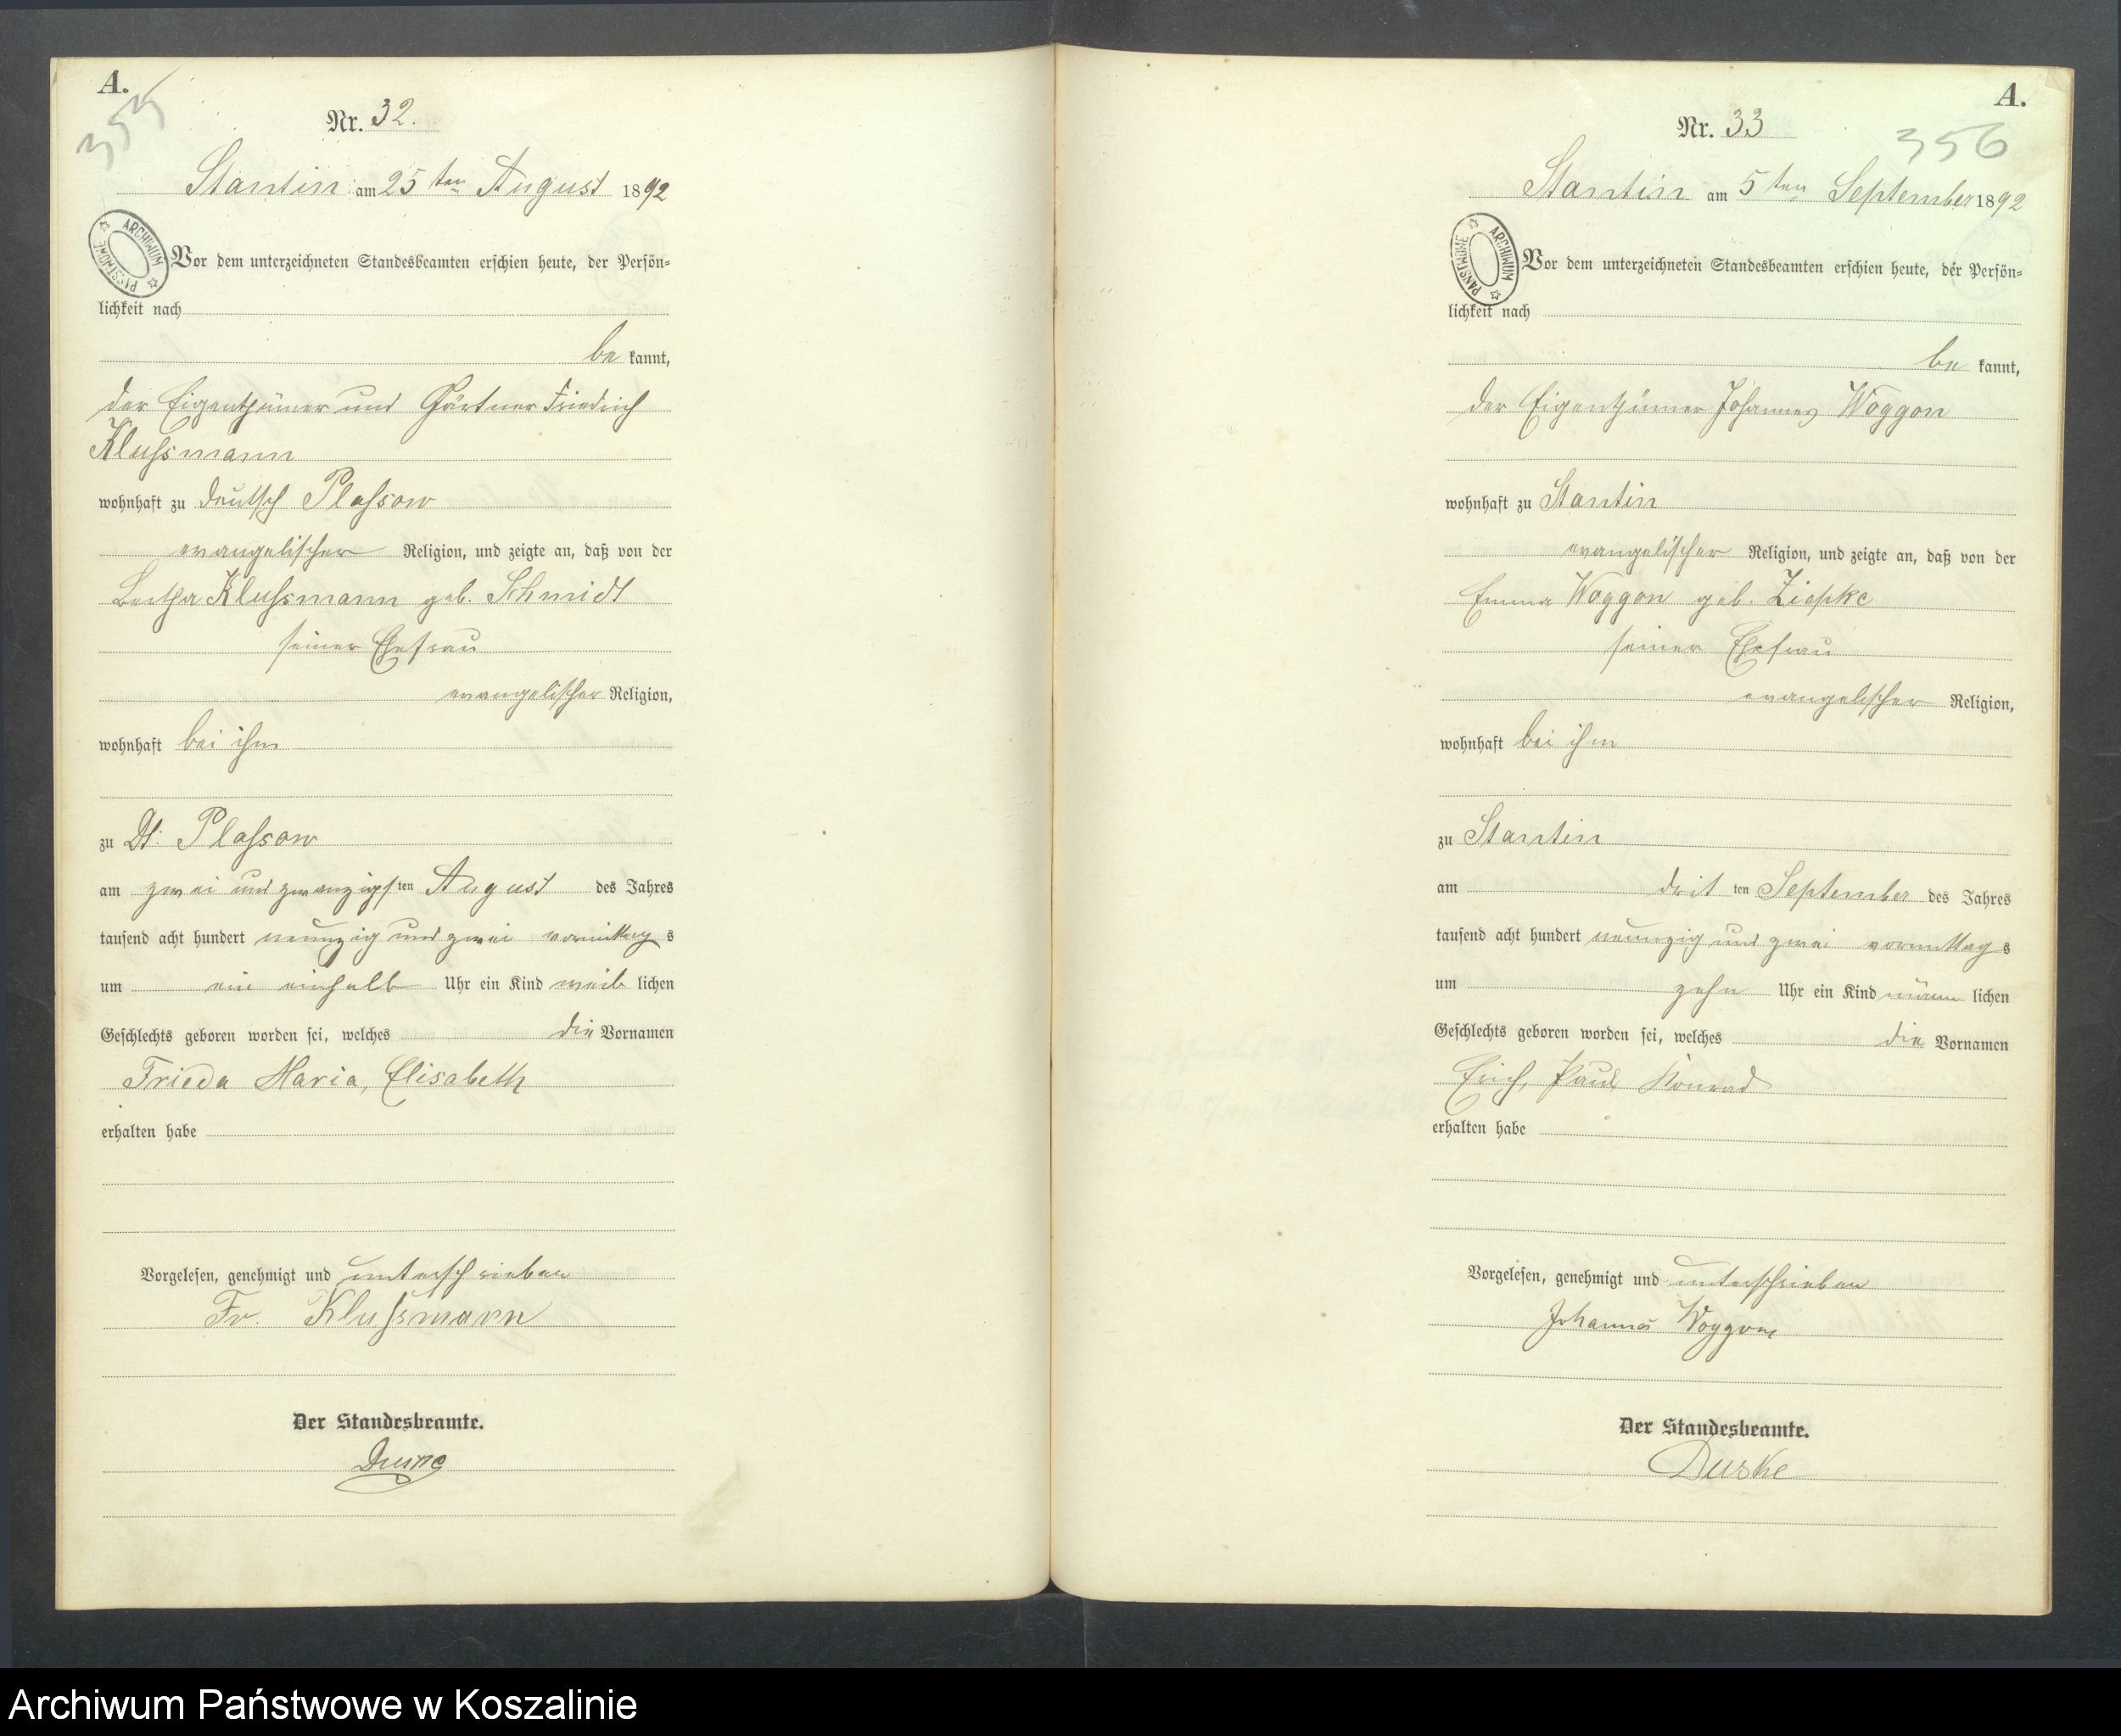 A.
355
Nr. 32.
Stantin am 25 ten August 1892
ARCHIWUM PAŃSTWOWE
Vor dem unterzeichneten Standesbeamten erschien heute, der Persön=
lichkeit nach
be kannt,
der Eigenthümer und Gärtner Friedrich
Klussmann
wohnhaft zu Deutsch Plassow
evangelischer Religion, und zeigte an, daß von der
Bertha Klussmann geb. Schmidt
seiner Ehefrau
evangelischer Religion,
wohnhaft bei ihm
zu Dt. Plassow
am zwei und zwanzigsten August des Jahres
tausend acht hundert neunzig und zwei vormittags
um ein einhalb Uhr ein Kind weib lichen
Geschlechts geboren worden sei, welches die Vornamen
Frieda Maria, Elisabeth
erhalten habe
Vorgelesen, genehmigt und unterschrieben
Fr. Klussmann
Der Standesbeamte.
A.
356
Nr. 33
Stantin am 5 ten September 1892
ARCHIWUM PAŃSTWOWE
Vor dem unterzeichneten Standesbeamten erschien heute, der Persön=
lichkeit nach
be kannt,
der Eigenthümer Johannes Woggon
wohnhaft zu Stantin
evangelischer Religion, und zeigte an, daß von der
Emma Woggon geb. Ziepke
seiner Ehefrau
evangelischer Religion,
wohnhaft bei ihm
zu Stantin
am drit ten September des Jahres
tausend acht hundert neunzig und zwei vormittags
um zehn Uhr ein Kind männ lichen
Geschlechts geboren worden sei, welches die Vornamen
Erich, Paul Konrad
erhalten habe
Vorgelesen, genehmigt und unterschrieben
Johannes Woggon
Der Standesbeamte.
Duske
Archiwum Państwowe w Koszalinie